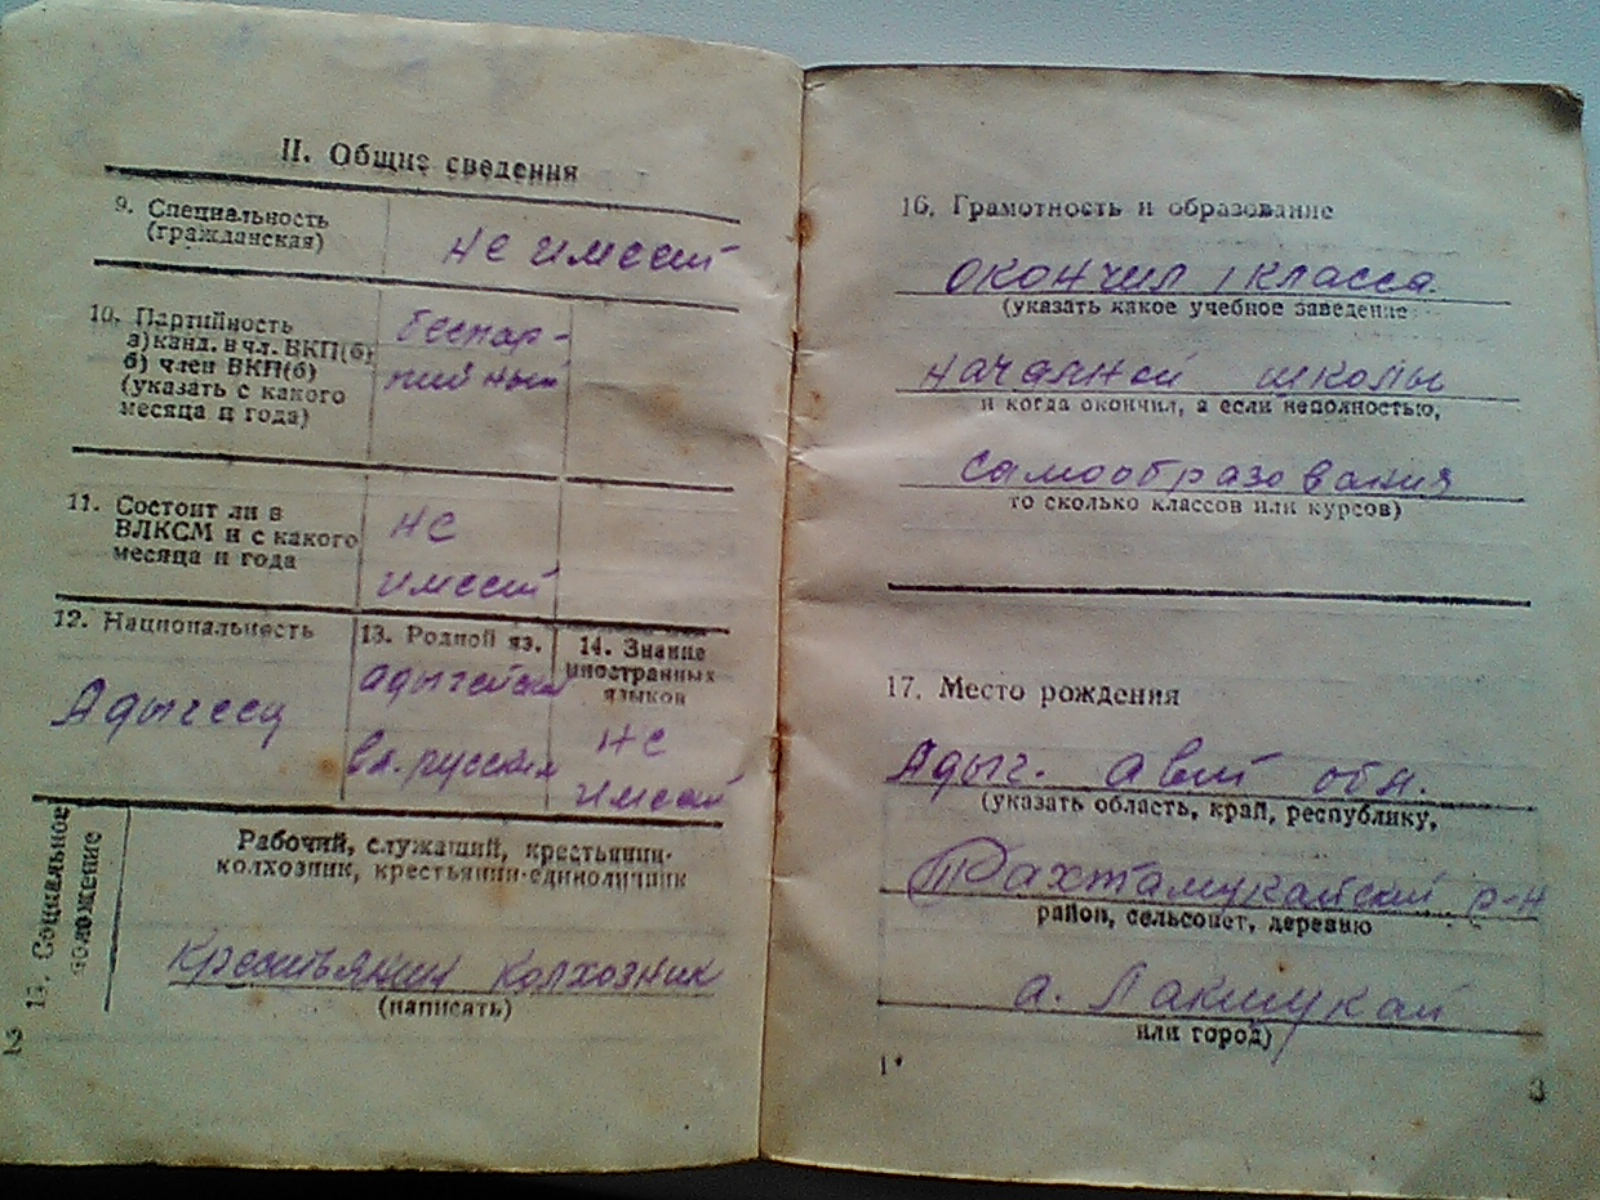 II. Общие сведения
9. Специальность
(гражданская)
не имеет
10. Партийность
а) канд. в чл. ВКП(б)
б) член ВКП(б)
(указать с какого
месяца и года)
беспар-
тийный
11. Состоит ли в
ВЛКСМ и с какого
месяца и года
не
имеет
12. Национальность
Адыгеец
13. Родной яз.
адыгейский
вл. русским
14. Знание
иностранных
языков
не
имеет
15. Социальное
положение
Рабочий, служащий, крестьянин-
колхозник, крестьянин-единоличник
Крестьянин колхозник
(написать)
2
16. Грамотность и образование
окончил 1 класса
(указать какое учебное заведение
начальной школы
и когда окончил, а если неполностью,
самообразования
то сколько классов или курсов)
17. Место рождения
Адыг. авт обл.
(указать область, край, республику,
Тахтамукайский р-н
район, сельсовет, деревню
а. Лакшукай
или город)
1*
3